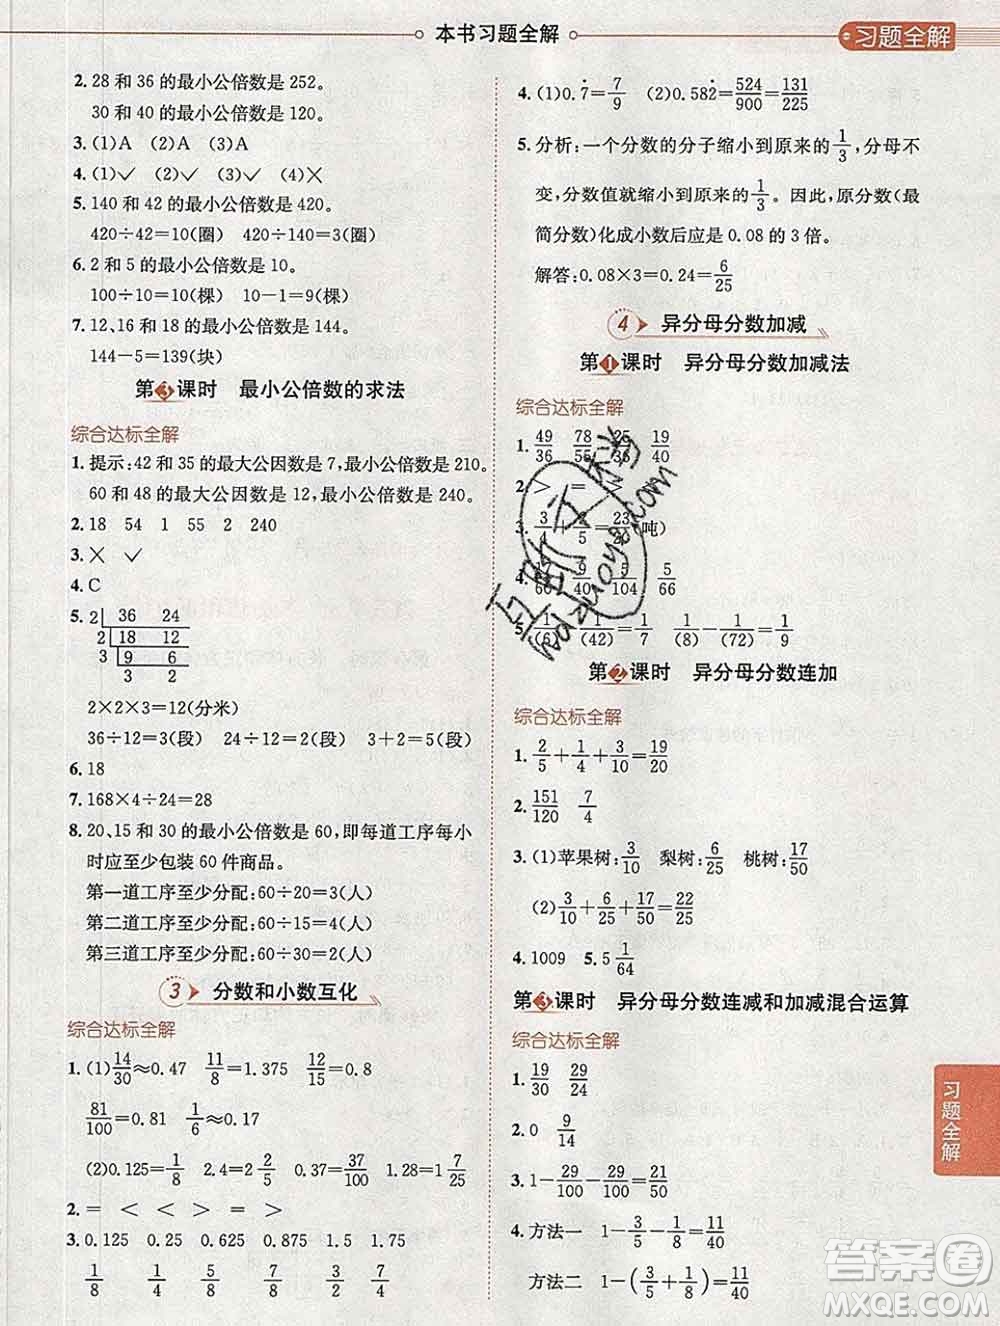 本书习题全解
习题全解
2. 28 和 36 的最小公倍数是 252。
30 和 40 的最小公倍数是 120。
3. (1)A (2)A (3)A
4. (1)✓ (2)✓ (3)✓ (4)✕
5. 140 和 42 的最小公倍数是 420。
420÷42=10(圈) 420÷140=3(圈)
6. 2 和 5 的最小公倍数是 10。
100÷10=10(棵) 10−1=9(棵)
7. 12、16 和 18 的最小公倍数是 144。
144−5=139(块)
第3课时 最小公倍数的求法
综合达标全解
1. 提示:42 和 35 的最大公因数是 7,最小公倍数是 210。
60 和 48 的最大公因数是 12,最小公倍数是 240。
2. 18 54 1 55 2 240
3. ✕ ✓
4. C
5. 2 36 24
2 18 12
3 9 6
3 2
2×2×3=12(分米)
36÷12=3(段) 24÷12=2(段) 3+2=5(段)
6. 18
7. 168×4÷24=28
8. 20、15 和 30 的最小公倍数是 60,即每道工序每小
时应至少包装 60 件商品。
第一道工序至少分配:60÷20=3(人)
第二道工序至少分配:60÷15=4(人)
第三道工序至少分配:60÷30=2(人)
3 分数和小数互化
综合达标全解
1. (1)14/30≈0.47 11/8=1.375 12/15=0.8
81/100=0.81 1/6≈0.17
(2)0.125=1/8 2.4=2 2/5 0.37=37/100 1.28=1 7/25
2. = < < > = >
3. 0.125 0.25 0.625 0.875 1.5 1.75
1/8 1/4 5/8 7/8 3/2 7/4
4. (1)0.7̇=7/9 (2)0.582̇=524/900=131/225
5. 分析:一个分数的分子缩小到原来的1/3,分母不
变,分数值就缩小到原来的1/3。因此,原分数(最
简分数)化成小数后应是 0.08 的 3 倍。
解答:0.08×3=0.24=6/25
4 异分母分数加减
第1课时 异分母分数加减法
综合达标全解
1. 49/36 78/55 25/36 19/40
2. > = >
3. 3/4+2/5=23/20(吨)
4. 17/66 9/40 15/104 5/66
5. 1/(6)−1/(42)=1/7 1/(8)−1/(72)=1/9
第2课时 异分母分数连加
综合达标全解
1. 2/5+1/4+3/10=19/20
2. 151/120 7/4
3. (1)苹果树:3/10 梨树:6/25 桃树:17/50
(2)3/10+6/25+17/50=22/25
4. 1009 5. 5 1/64
第3课时 异分母分数连减和加减混合运算
综合达标全解
1. 19/30 29/24
2. 0 9/14
3. 1−29/100−29/50=21/50
4. 方法一 1−3/5−1/8=11/40
方法二 1−(3/5+1/8)=11/40
习题全解
答案圈
MXQE.COM